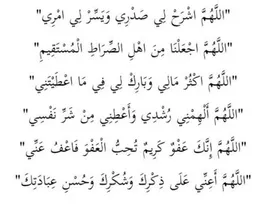 "اللَّهُمَّ اشْرَحْ لِي صَدْرِي وَيَسِّرْ لِي امْرِي"
"اللَّهُمَّ اجْعَلْنَا مِنَ اهْلِ الصِّرَاطِ الْمُسْتَقِيمِ"
"اللَّهُمَّ اكْثُرْ مَالِي وَبَارِكْ لِي فِي مَا اعْطَيْتَنِي"
"اللَّهُمَّ أَلْهِمْنِي رُشْدِي وَأَعْطِنِي مِنْ شَرِّ نَفْسِي"
"اللَّهُمَّ إِنَّكَ عَفُوٌّ كَرِيمٌ تُحِبُّ الْعَفْوَ فَاعْفُ عَنِّي"
"اللَّهُمَّ أَعِنِّي عَلَى ذِكْرِكَ وَشُكْرِكَ وَحُسْنِ عِبَادَتِكَ"